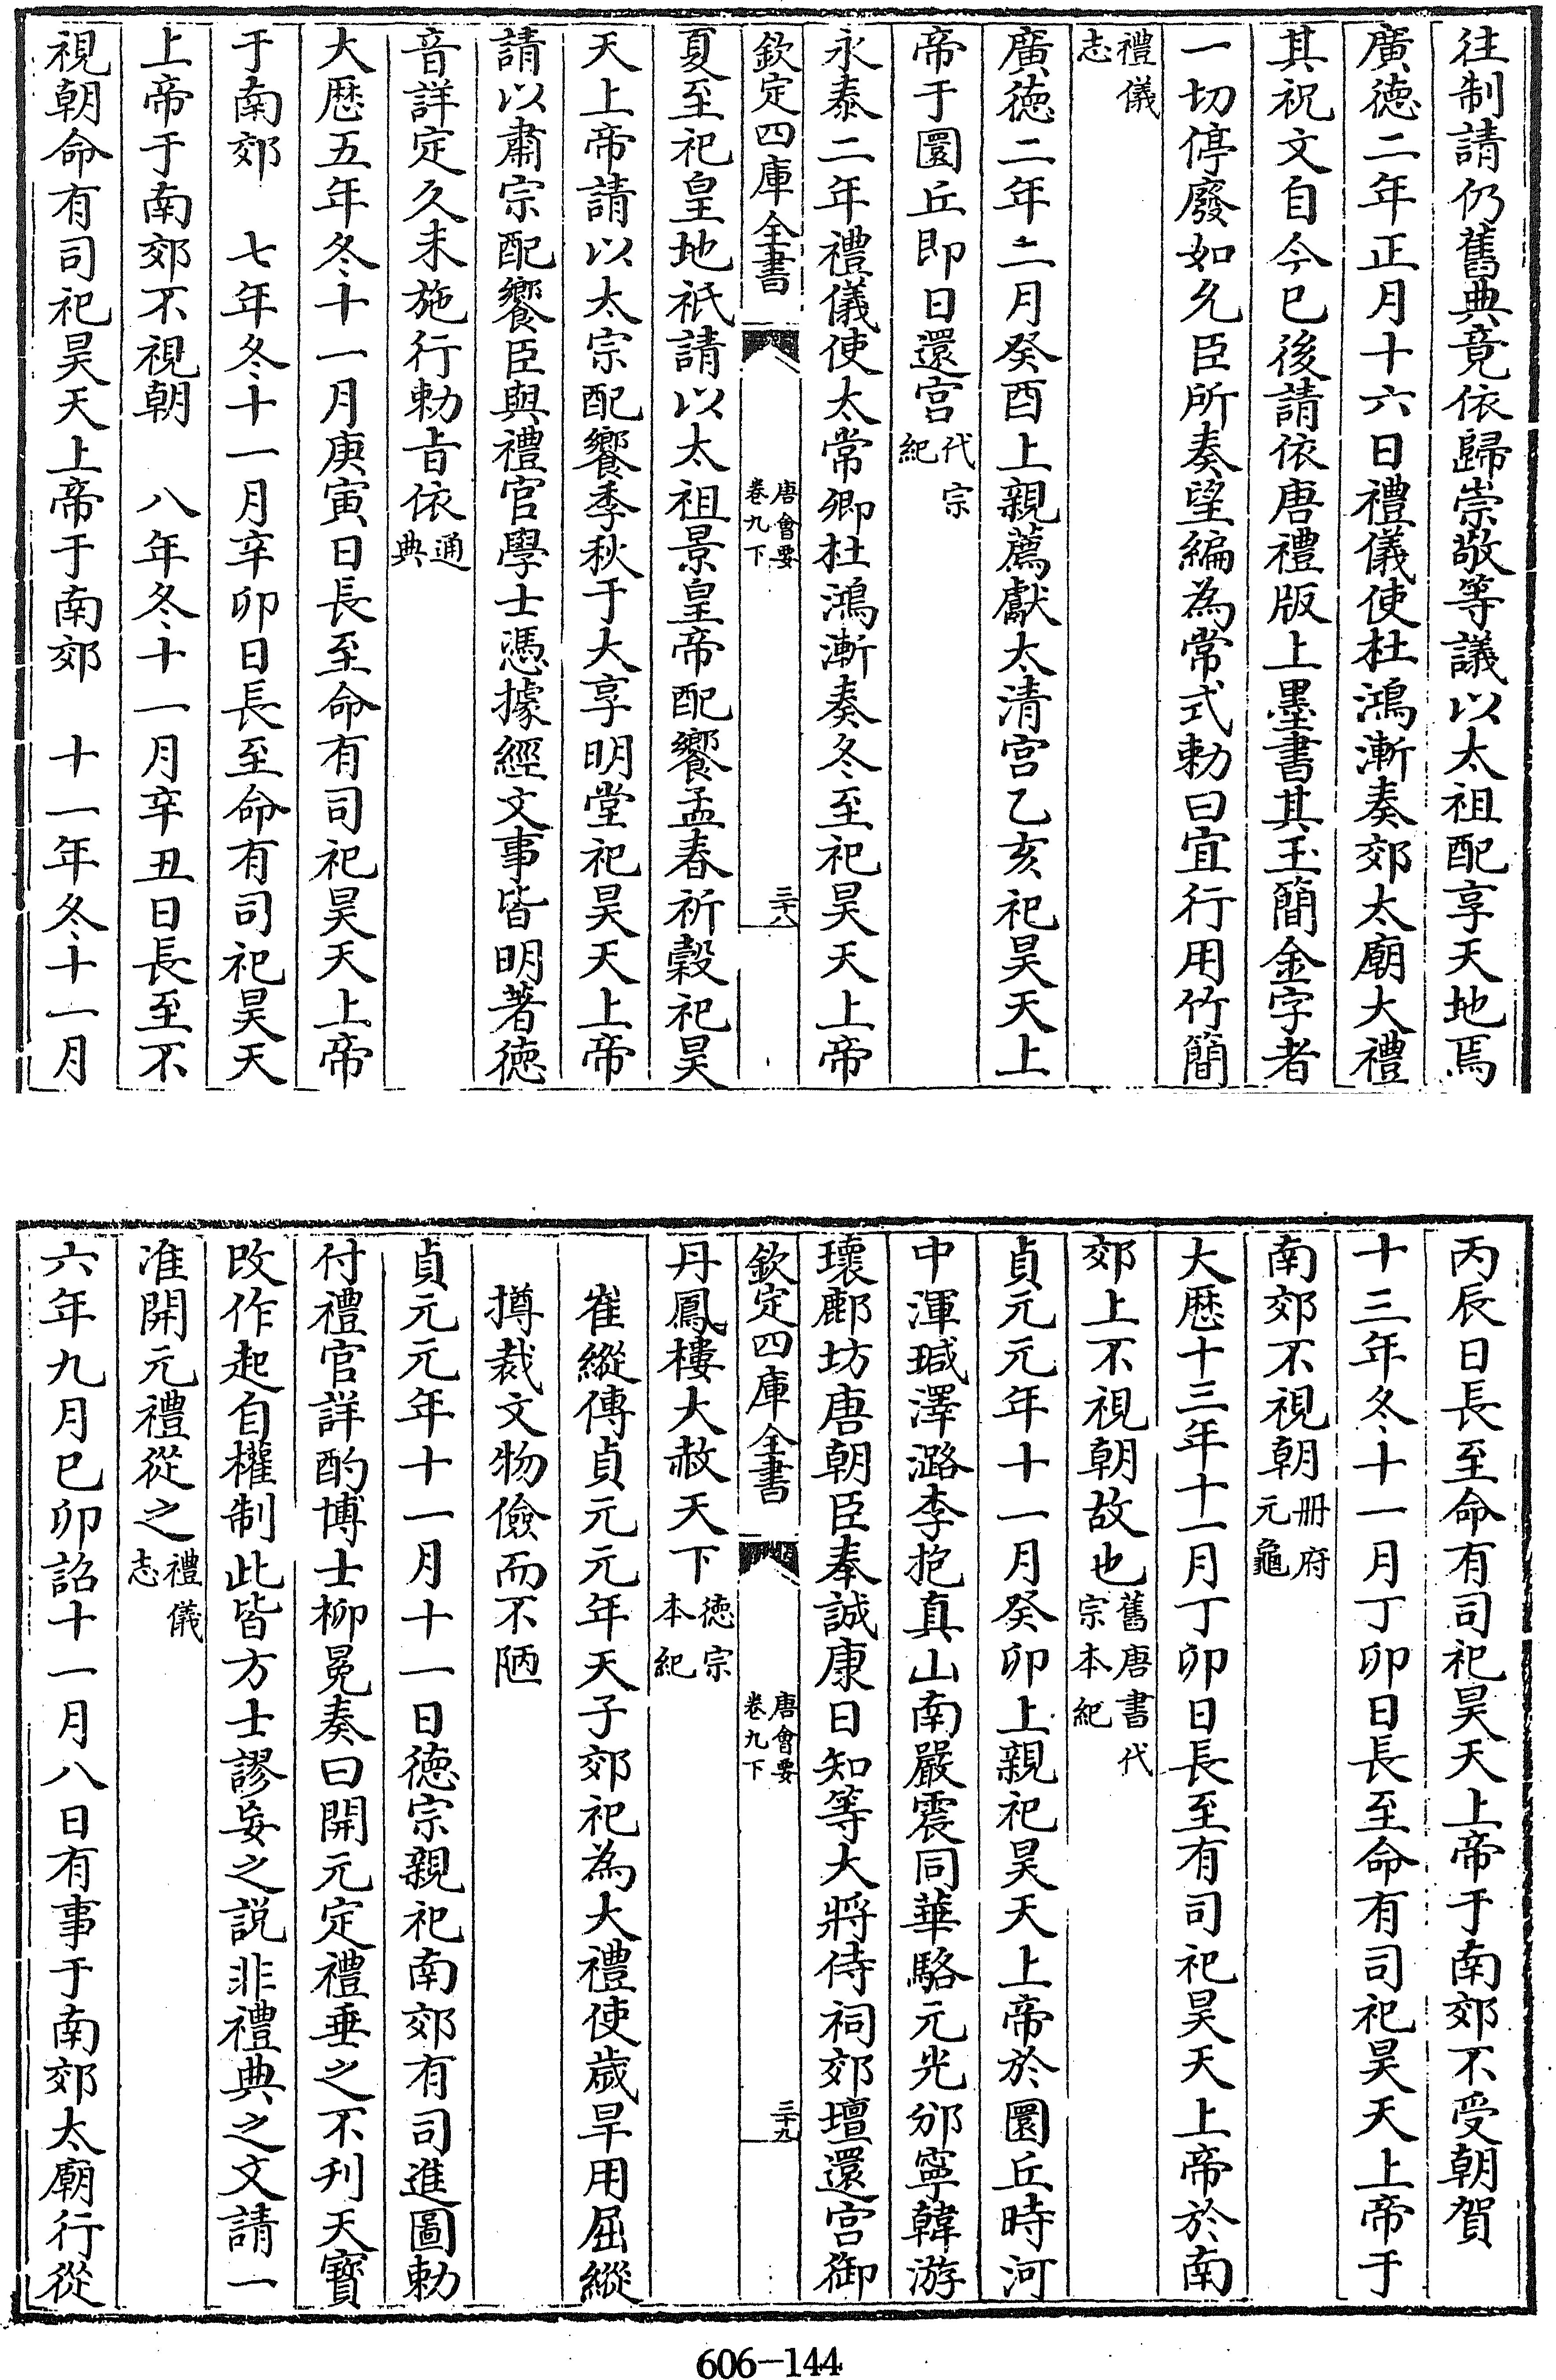 徃制請仍舊典竟依歸崇敬等議以太祖配享天地焉
廣徳二年正月十六日禮儀使杜鴻漸奏郊太廟大禮
其祝文自今已後請依唐禮版上墨書其玉簡金字者
一切停廢如允臣所奏望編為常式勅曰宜行用竹簡
禮儀
志
廣徳二年二月癸酉上親薦獻太清宫乙亥祀昊天上
帝于圜丘即日還宫代宗
紀
永泰二年禮儀使太常卿杜鴻漸奏冬至祀昊天上帝
欽定四庫全書
唐會要
卷九下
三十八
夏至祀皇地祇請以太祖景皇帝配饗孟春祈穀祀昊
天上帝請以太宗配饗季秋于大享明堂祀昊天上帝
請以肅宗配饗臣與禮官學士憑據經文事皆明著徳
音詳定久未施行勅旨依通
典
大厯五年冬十一月庚寅日長至命有司祀昊天上帝
于南郊　七年冬十一月辛卯日長至命有司祀昊天
上帝于南郊不視朝　八年冬十一月辛丑日長至不
視朝命有司祀昊天上帝于南郊　十一年冬十一月
丙辰日長至命有司祀昊天上帝于南郊不受朝賀
十三年冬十一月丁卯日長至命有司祀昊天上帝于
南郊不視朝冊府
元龜
大厯十三年十一月丁卯日長至有司祀昊天上帝於南
郊上不視朝故也舊唐書代
宗本紀
貞元元年十一月癸卯上親祀昊天上帝於圜丘時河
中渾瑊澤潞李抱真山南嚴震同華駱元光邠寧韓游
瓌鄜坊唐朝臣奉誠康日知等大將侍祠郊壇還宫御
欽定四庫全書
唐會要
卷九下
三十九
丹鳳樓大赦天下徳宗
本紀
崔縱傳貞元元年天子郊祀為大禮使歲旱用屈縱
撙裁文物儉而不陋
貞元元年十一月十一日德宗親祀南郊有司進圖勅
付禮官詳酌博士柳冕奏曰開元定禮垂之不刋天寳
改作起自權制此皆方士謬妄之説非禮典之文請一
准開元禮從之禮儀
志
六年九月已卯詔十一月八日有事于南郊太廟行從
606-144